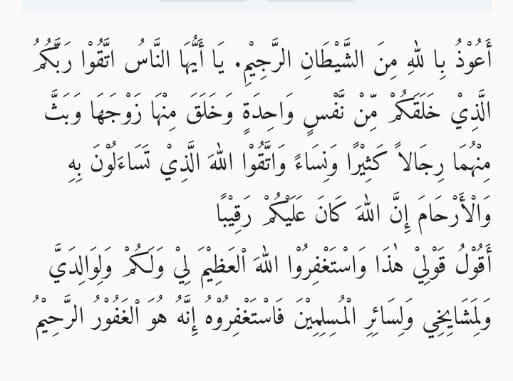 أَعُوْذُ بِا للهِ مِنَ الشَّيْطَانِ الرَّجِيْمِ. يَا أَيُّهَا النَّاسُ اتَّقُوْا رَبَّكُمُ
الَّذِيْ خَلَقَكُمْ مِّنْ نَّفْسٍ وَاحِدَةٍ وَخَلَقَ مِنْهَا زَوْجَهَا وَبَثَّ
مِنْهُمَا رِجَالاً كَثِيْرًا وَنِسَاءً وَاتَّقُوْا اللهَ الَّذِيْ تَسَاءَلُوْنَ بِهِ
وَالْأَرْحَامَ إِنَّ اللهَ كَانَ عَلَيْكُمْ رَقِيْبًا
أَقُوْلُ قَوْلِيْ هٰذَا وَاسْتَغْفِرُوْا اللهَ الْعَظِيْمَ لِيْ وَلَكُمْ وَلِوَالِدَيَّ
وَلِمَشَايِخِي وَلِسَائِرِ الْمُسْلِمِيْنَ فَاسْتَغْفِرُوْهُ إِنَّهُ هُوَ الْغَفُوْرُ الرَّحِيْمُ